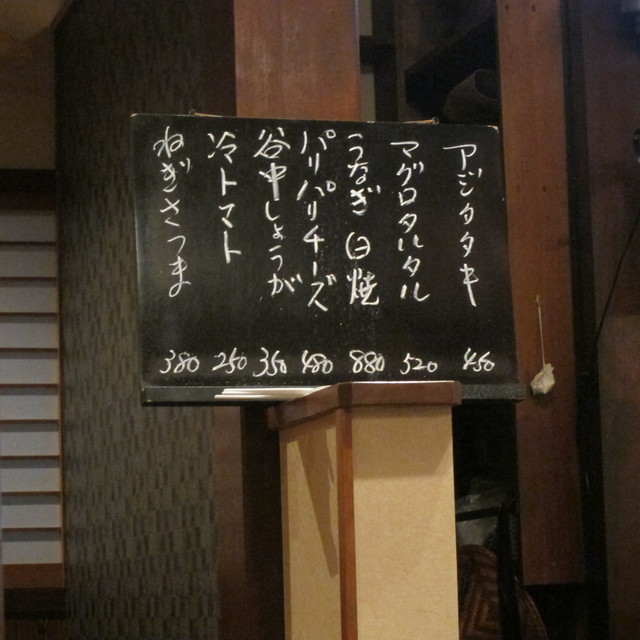 アジタタキ 450
マグロタルタル 520
うなぎ 白焼 880
パリパリチーズ 480
谷中しょうが 350
冷トマト 250
ねぎさつま 380